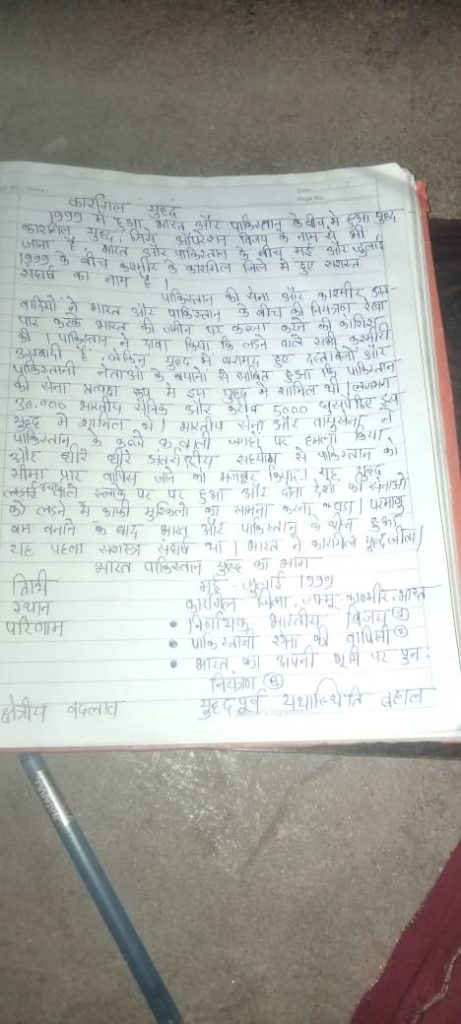 कारगिल युद्द
1999 मे हुआ भारत और पाकिस्तान के बीच मे हुआ युद्द
कारगिल युद्द, जिसे ऑपरेशन विजय के नाम से भी
जाना है, भारत और पाकिस्तान के बीच मई और जुलाई
1999 के बीच कश्मीर के कारगिल जिले मे हुए सशस्त
संघर्ष का नाम है।
पाकिस्तान की सेना और काश्मीर उग्र-
वादियों ने भारत और पाकिस्तान के बीच की नियंत्रण रेखा
पार करके भारत की जमीन पर कब्जा करने की कोशिश
की। पाकिस्तान ने दावा किया कि लडने वाले सभी कश्मीरी
उग्रवादी है, लेकिन युद्द मे बरामद हुए दस्तावेजों और
पाकिस्तानी नेताओ के बयानों से साबित हुआ कि पाकिस्तान
की सेना प्रत्यक्ष रूप में इस युद्द मे शामिल थी। लगभग
30,000 भारतीय सैनिक और करीब 5000 घुसपैठिए इस
युद्द मे शामिल थे। भारतीय सेना और वायुसेना ने
पाकिस्तान के कब्जे वाली जगहों पर हमला किया
और धीरे धीरे अंतर्राष्ट्रीय सहयोग से पाकिस्तान को
सीमा पार वापिस जाने को मजबूर किया। यह युद्द
ऊंचाई वाले इलाके पर पर हुआ और दोनों देशों की सेनाओं
को लडने मे काफी मुश्किलो का सामना करना पडा। परमाणु
बम बनाने के बाद भारत और पाकिस्तान के बीच हुआ
यह पहला सशस्त्र संघर्ष था। भारत ने कारगिल युद्द जीता।
भारत पाकिस्तान युद्द का भाग
तिथि मई-जुलाई 1999
स्थान कारगिल जिला, जम्मू कश्मीर, भारत
परिणाम • निर्णायक भारतीय विजय ①
• पाकिस्तानी सेना की वापिसी ②
• भारत का अपनी भूमि पर पुन:
नियंत्रण ③
क्षेत्रीय बदलाव युद्दपूर्व यथास्थिति बहाल